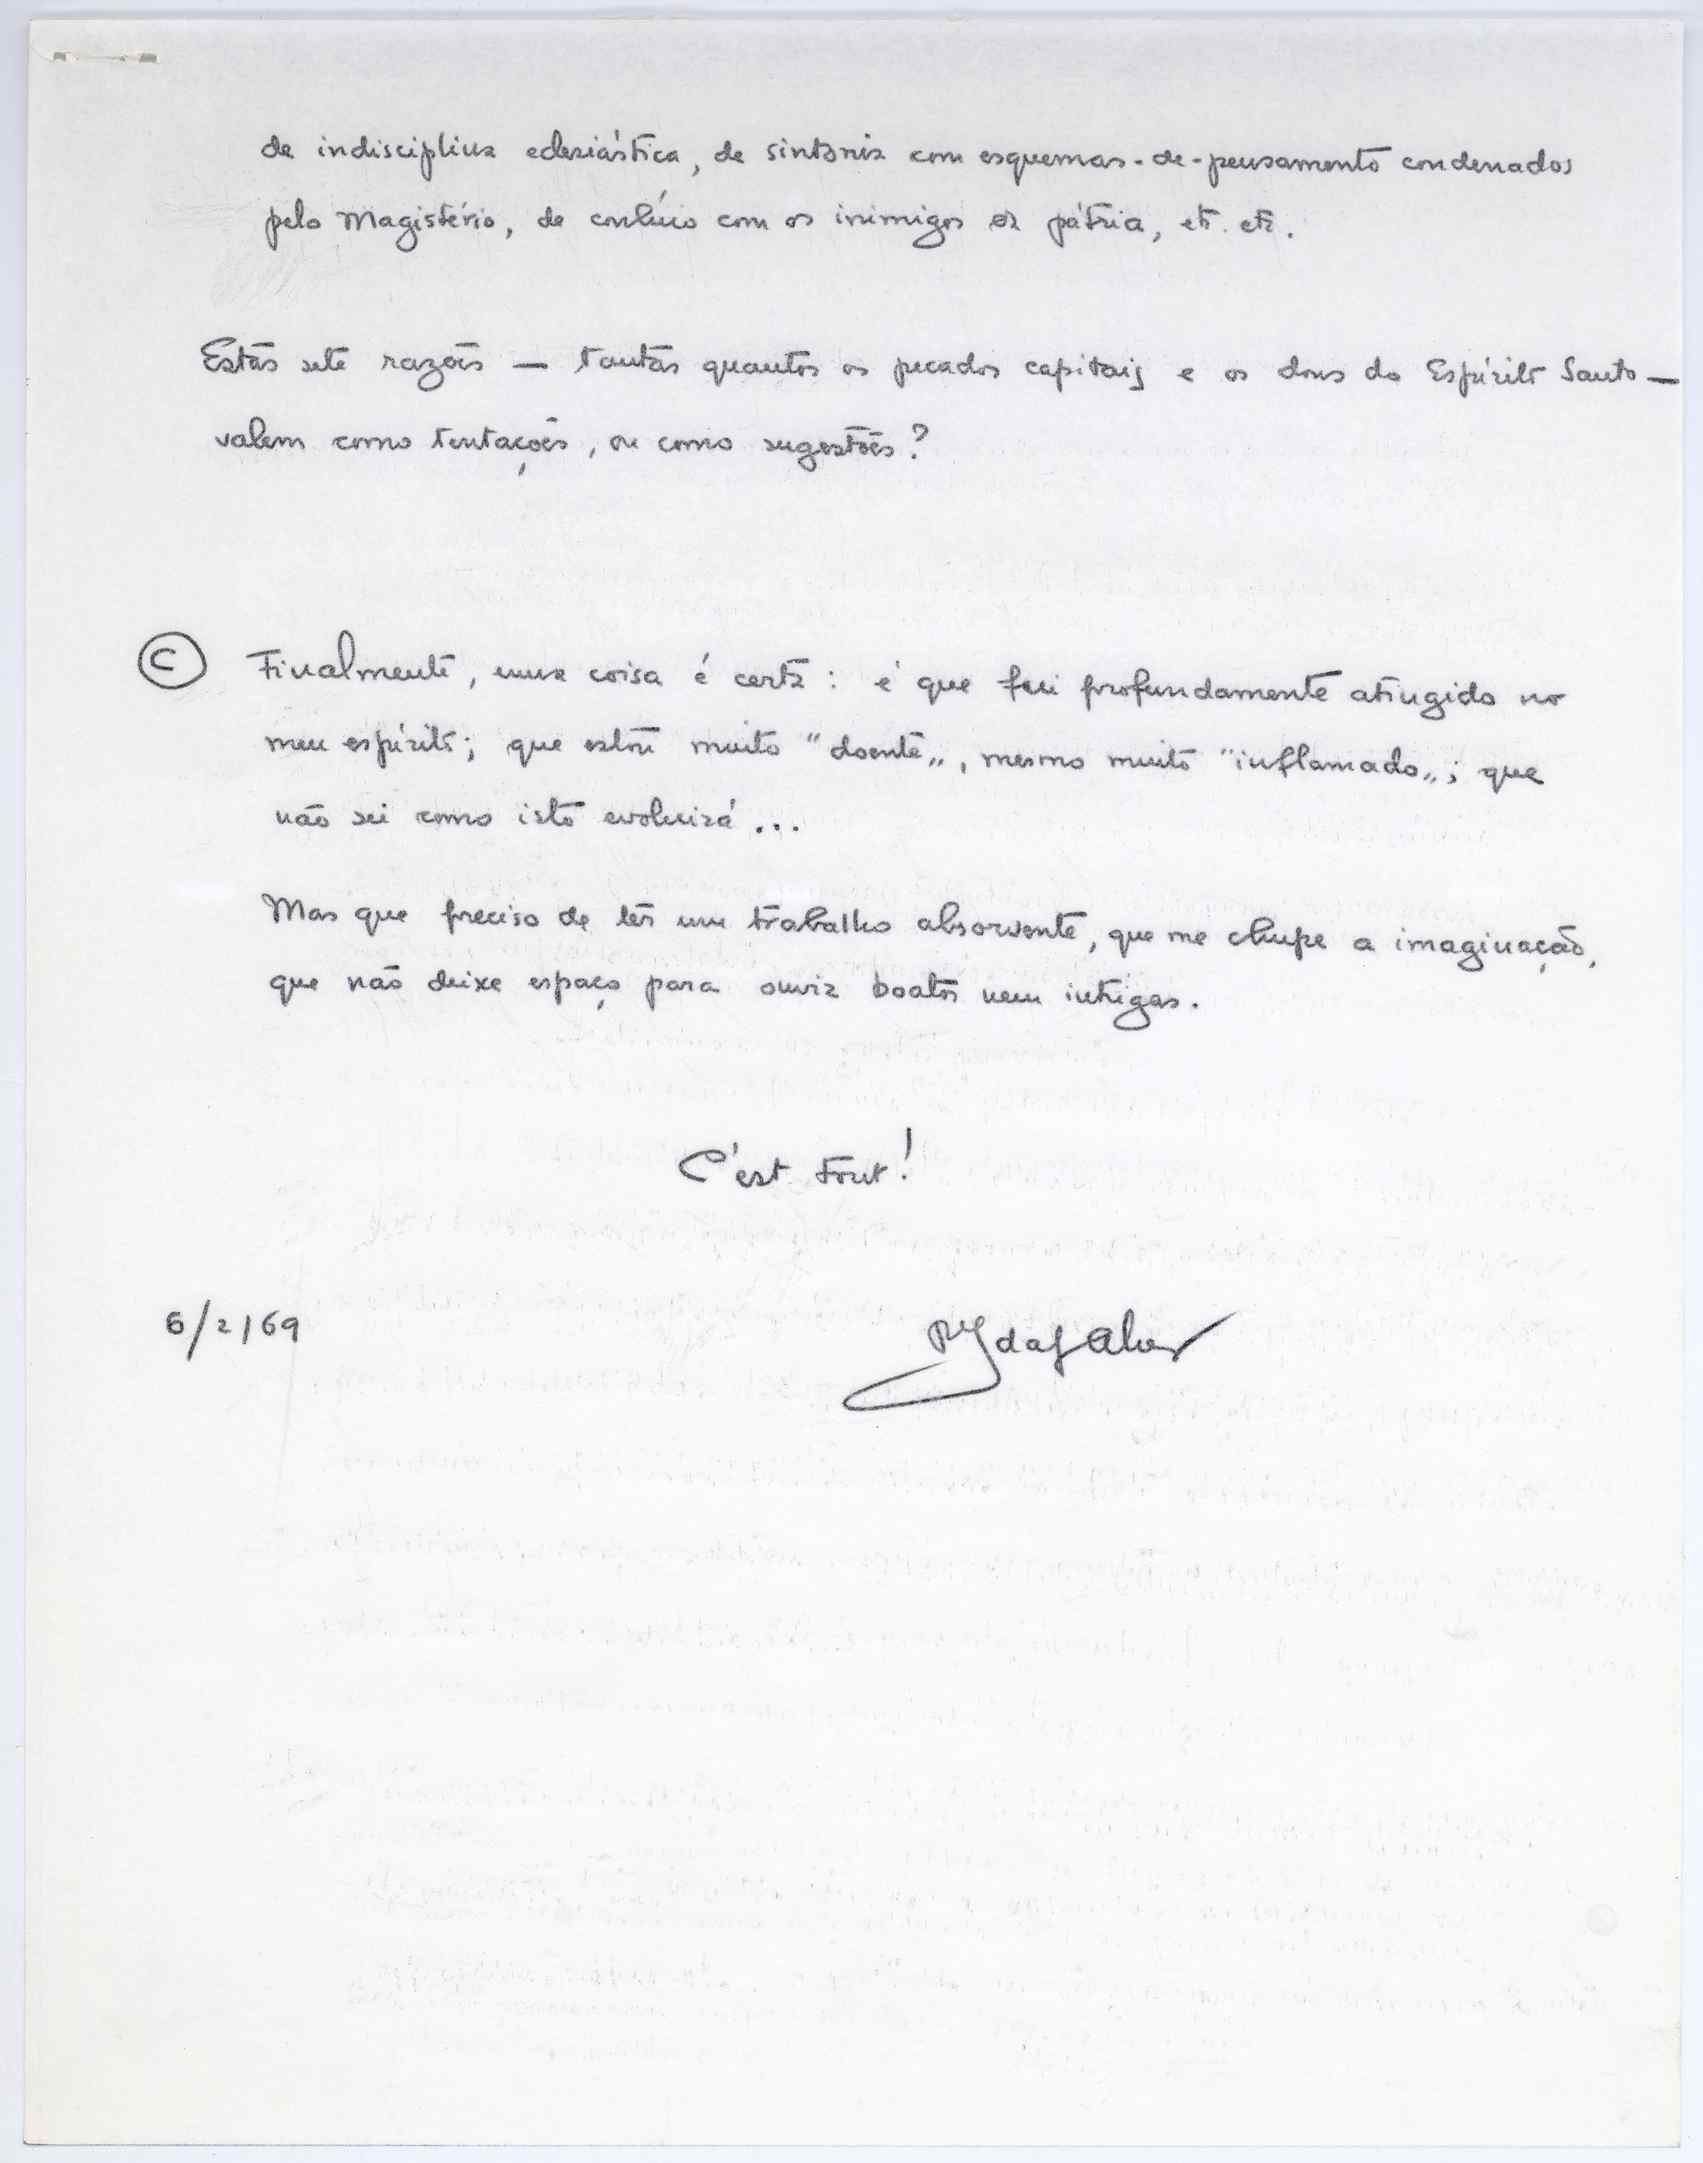 de indisciplina eclesiástica, de sintonia com esquemas-de-pensamento condenados
pelo Magistério, de conluio com os inimigos da pátria, etc. etc.
Estas sete razões — tantas quantos os pecados capitais e os dons do Espírito Santo —
valem como tentações, ou como sugestões?
C Finalmente, uma coisa é certa: é que fui profundamente atingido no
meu espírito; que estou muito "doente", mesmo muito "inflamado"; que
não sei como isto evoluirá...
Mas que preciso de ter um trabalho absorvente, que me chupe a imaginação,
que não deixe espaço para ouvir boatos nem intrigas.
C'est tout!
6/2/69